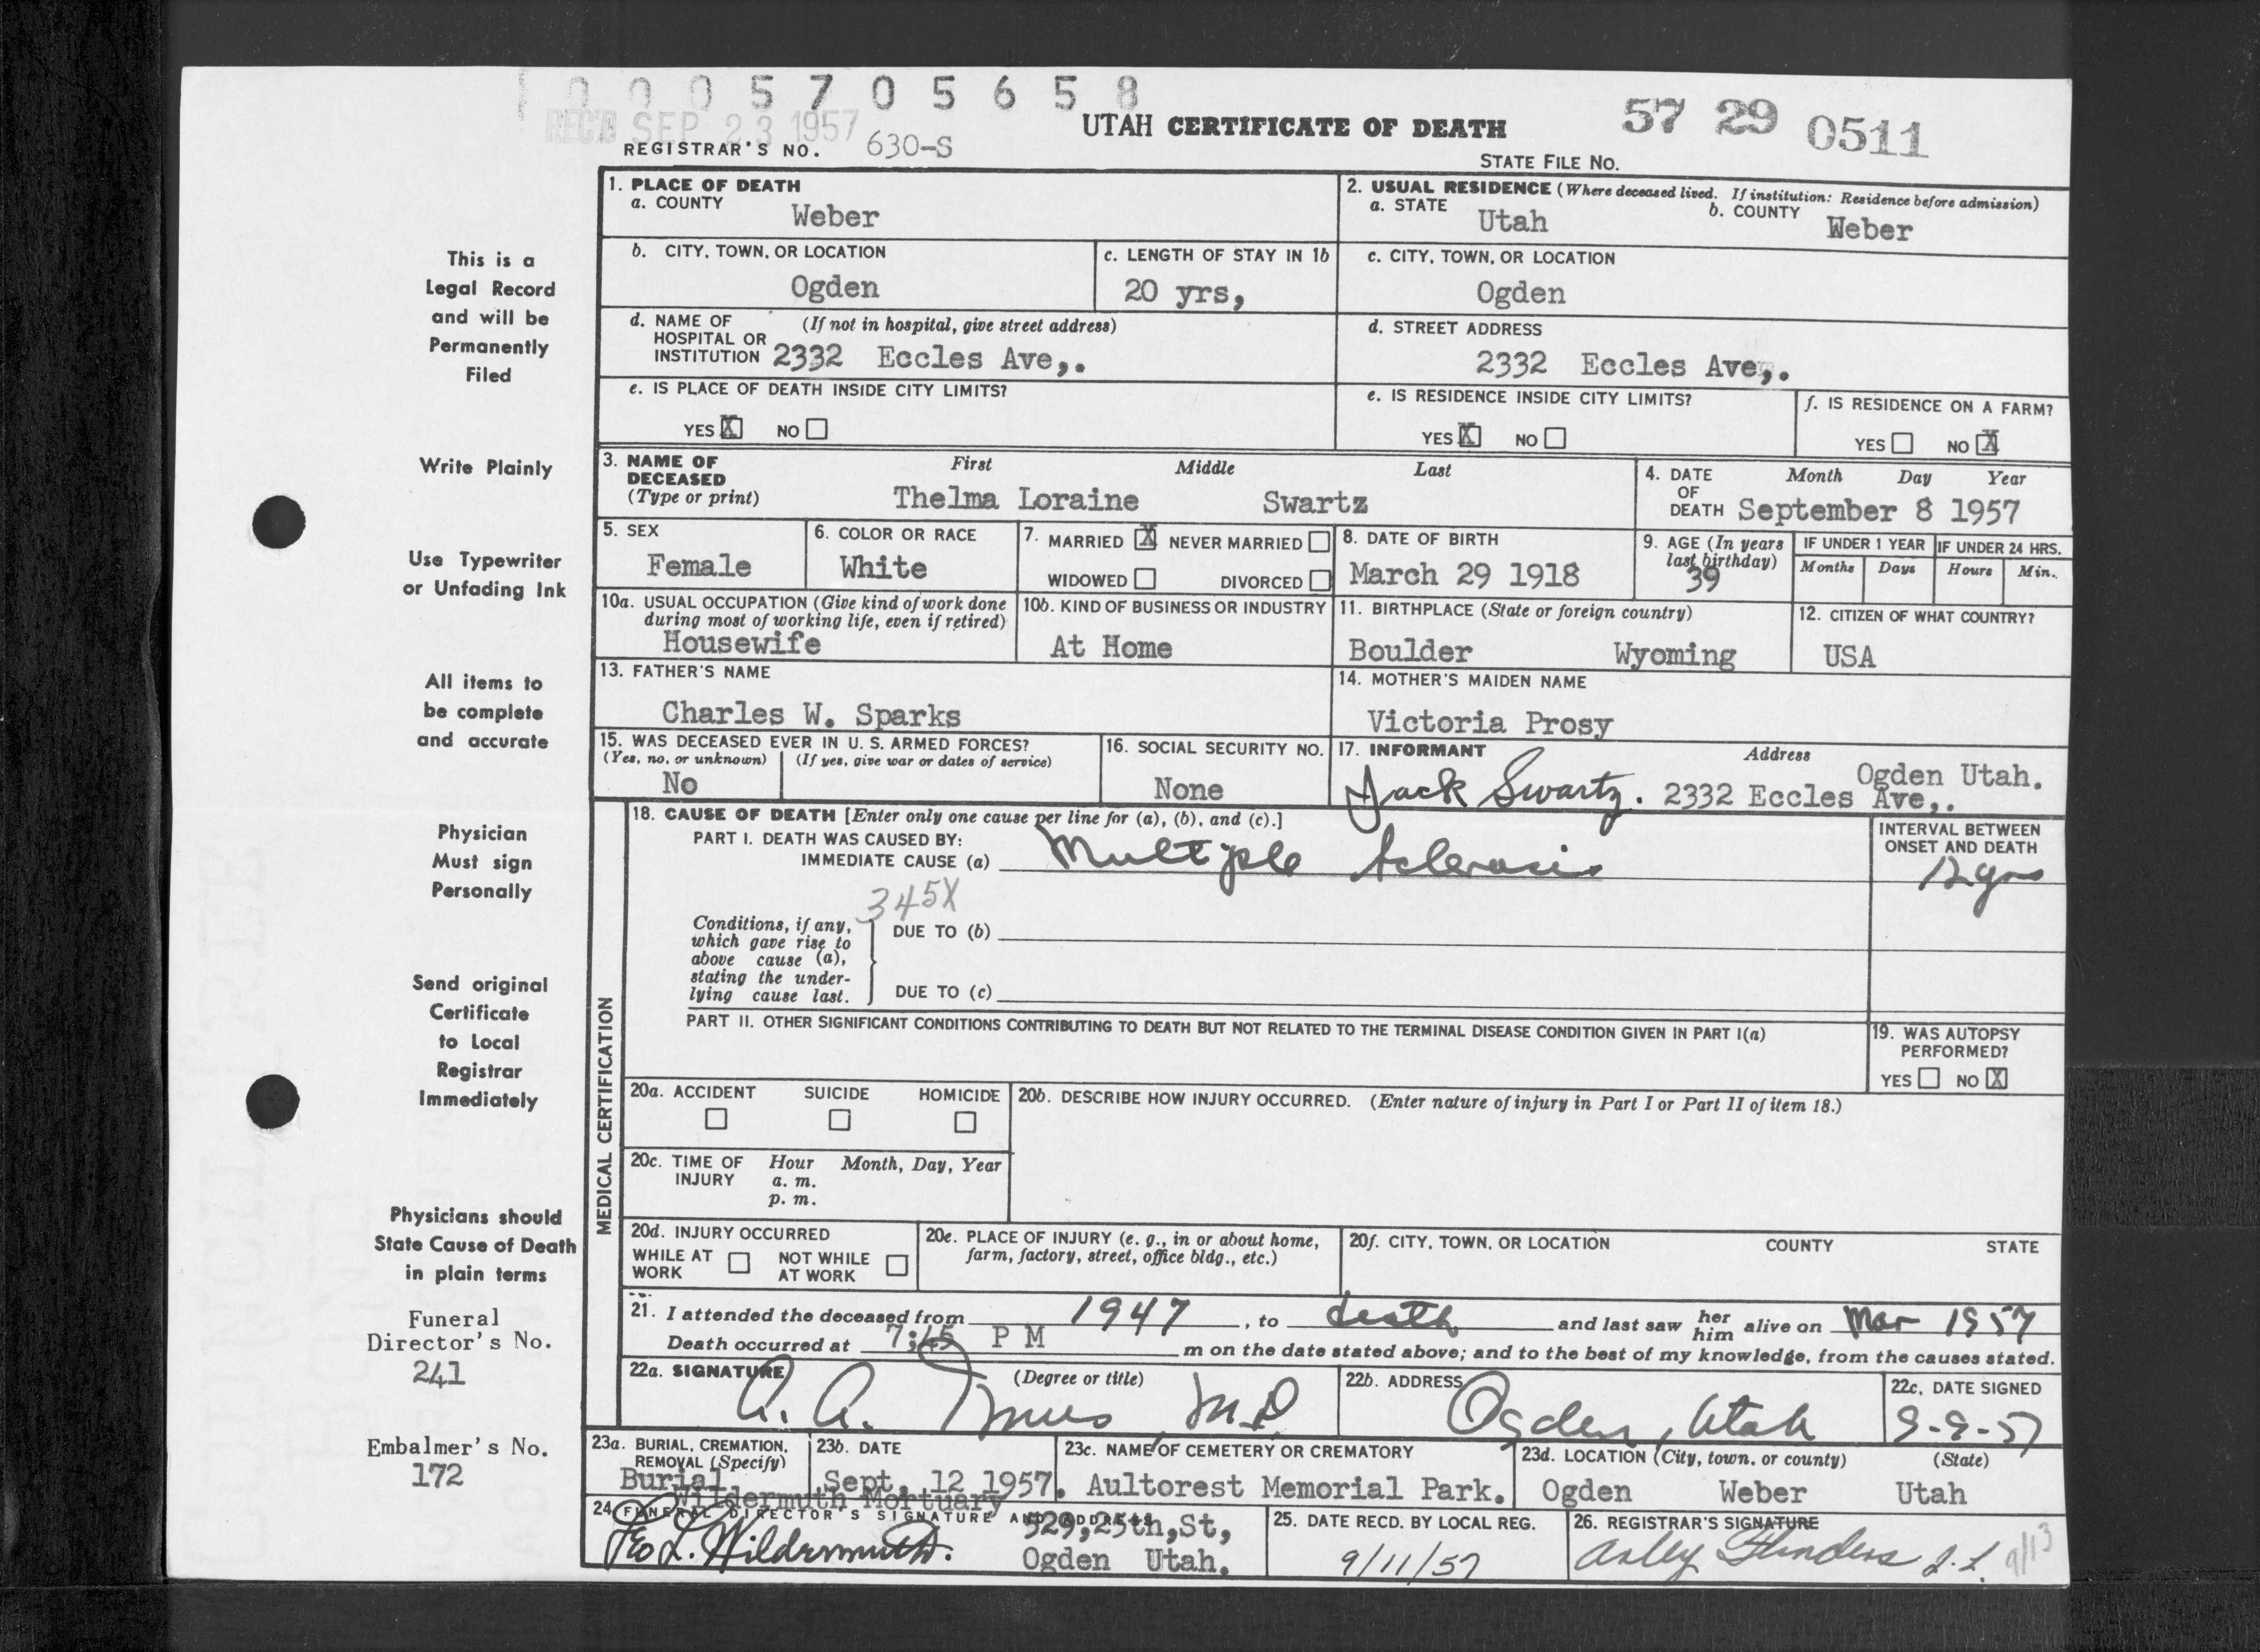 0 0 0 5 7 0 5 6 5 8
REC'D SEP 23 1957
UTAH CERTIFICATE OF DEATH
57 29 0511
REGISTRAR'S NO. 630-S
STATE FILE NO.
This is a
Legal Record
and will be
Permanently
Filed
Write Plainly
Use Typewriter
or Unfading Ink
All items to
be complete
and accurate
Physician
Must sign
Personally
Send original
Certificate
to Local
Registrar
Immediately
Physicians should
State Cause of Death
in plain terms
Funeral
Director's No.
241
Embalmer's No.
172
1. PLACE OF DEATH
a. COUNTY
Weber
2. USUAL RESIDENCE (Where deceased lived. If institution: Residence before admission)
a. STATE
Utah
b. COUNTY
Weber
b. CITY, TOWN, OR LOCATION
Ogden
c. LENGTH OF STAY IN 1b
20 yrs,
c. CITY, TOWN, OR LOCATION
Ogden
d. NAME OF (If not in hospital, give street address)
HOSPITAL OR
INSTITUTION 2332 Eccles Ave,.
d. STREET ADDRESS
2332 Eccles Ave,.
e. IS PLACE OF DEATH INSIDE CITY LIMITS?
YES X NO
e. IS RESIDENCE INSIDE CITY LIMITS?
YES X NO
f. IS RESIDENCE ON A FARM?
YES NO X
3. NAME OF
DECEASED
(Type or print)
First Middle Last
Thelma Loraine Swartz
4. DATE Month Day Year
OF
DEATH September 8 1957
5. SEX
Female
6. COLOR OR RACE
White
7. MARRIED X NEVER MARRIED
WIDOWED DIVORCED
8. DATE OF BIRTH
March 29 1918
9. AGE (In years
last birthday)
39
IF UNDER 1 YEAR
Months Days
IF UNDER 24 HRS.
Hours Min.
10a. USUAL OCCUPATION (Give kind of work done
during most of working life, even if retired)
Housewife
10b. KIND OF BUSINESS OR INDUSTRY
At Home
11. BIRTHPLACE (State or foreign country)
Boulder Wyoming
12. CITIZEN OF WHAT COUNTRY?
USA
13. FATHER'S NAME
Charles W. Sparks
14. MOTHER'S MAIDEN NAME
Victoria Prosy
15. WAS DECEASED EVER IN U. S. ARMED FORCES?
(Yes, no, or unknown) (If yes, give war or dates of service)
No
16. SOCIAL SECURITY NO.
None
17. INFORMANT Address
Ogden Utah.
Jack Swartz. 2332 Eccles Ave,.
MEDICAL CERTIFICATION
18. CAUSE OF DEATH [Enter only one cause per line for (a), (b), and (c).]
PART I. DEATH WAS CAUSED BY:
IMMEDIATE CAUSE (a) Multiple Sclerosis
INTERVAL BETWEEN
ONSET AND DEATH
12 yrs
345X
Conditions, if any,
which gave rise to
above cause (a),
stating the under-
lying cause last.
DUE TO (b)
DUE TO (c)
PART II. OTHER SIGNIFICANT CONDITIONS CONTRIBUTING TO DEATH BUT NOT RELATED TO THE TERMINAL DISEASE CONDITION GIVEN IN PART I(a)
19. WAS AUTOPSY
PERFORMED?
YES NO X
20a. ACCIDENT SUICIDE HOMICIDE
20b. DESCRIBE HOW INJURY OCCURRED. (Enter nature of injury in Part I or Part II of item 18.)
20c. TIME OF Hour Month, Day, Year
INJURY a. m.
p. m.
20d. INJURY OCCURRED
WHILE AT WORK NOT WHILE AT WORK
20e. PLACE OF INJURY (e. g., in or about home,
farm, factory, street, office bldg., etc.)
20f. CITY, TOWN, OR LOCATION COUNTY STATE
21. I attended the deceased from 1947, to death and last saw her him alive on Mar 1957
Death occurred at 7:45 P M m on the date stated above; and to the best of my knowledge, from the causes stated.
22a. SIGNATURE (Degree or title)
A. A. M.D
22b. ADDRESS
Ogden, Utah
22c. DATE SIGNED
9-9-57
23a. BURIAL, CREMATION,
REMOVAL (Specify)
Burial
23b. DATE
Sept. 12 1957.
23c. NAME OF CEMETERY OR CREMATORY
Aultorest Memorial Park.
23d. LOCATION (City, town, or county) (State)
Ogden Weber Utah
Wildermuth Mortuary
24. FUNERAL DIRECTOR'S SIGNATURE AND ADDRESS
529, 25th, St,
Leo L. Wildermuth.
Ogden Utah.
25. DATE RECD. BY LOCAL REG.
9/11/57
26. REGISTRAR'S SIGNATURE
Flinders J.L. 9/13